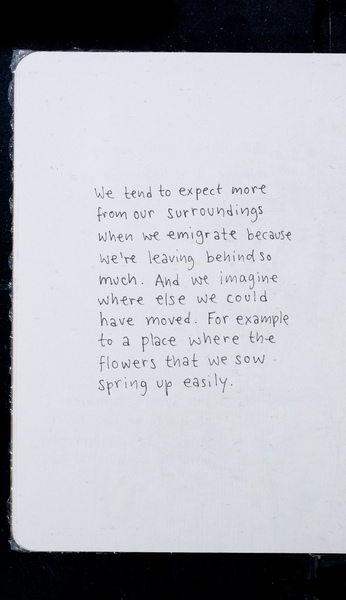 We tend to expect more
from our surroundings
when we emigrate because
we're leaving behind so
much. And we imagine
where else we could
have moved. For example
to a place where the
flowers that we sow
spring up easily.